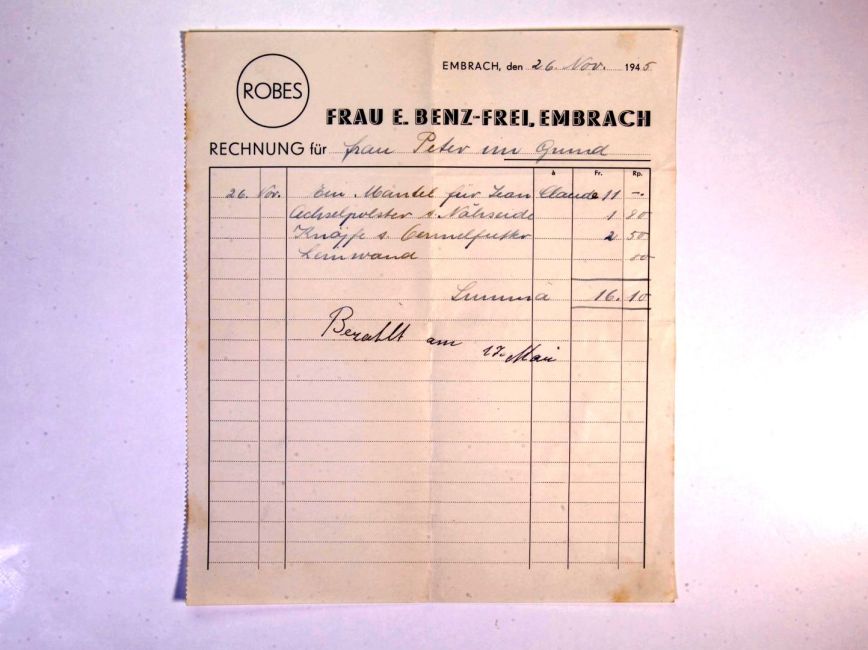 ROBES
EMBRACH, den 26. Nov. 1945
FRAU E. BENZ-FREI, EMBRACH
RECHNUNG für Frau Peter im Grund
à Fr. Rp.
26. Nov. Ein Mantel für Jean Claude 11 -.
Achselpolster & Nähseide 1 80
Knöpfe & Ärmelfutter 2 50
Leinwand 80
Summa 16. 10
Bezahlt am 17. Mai